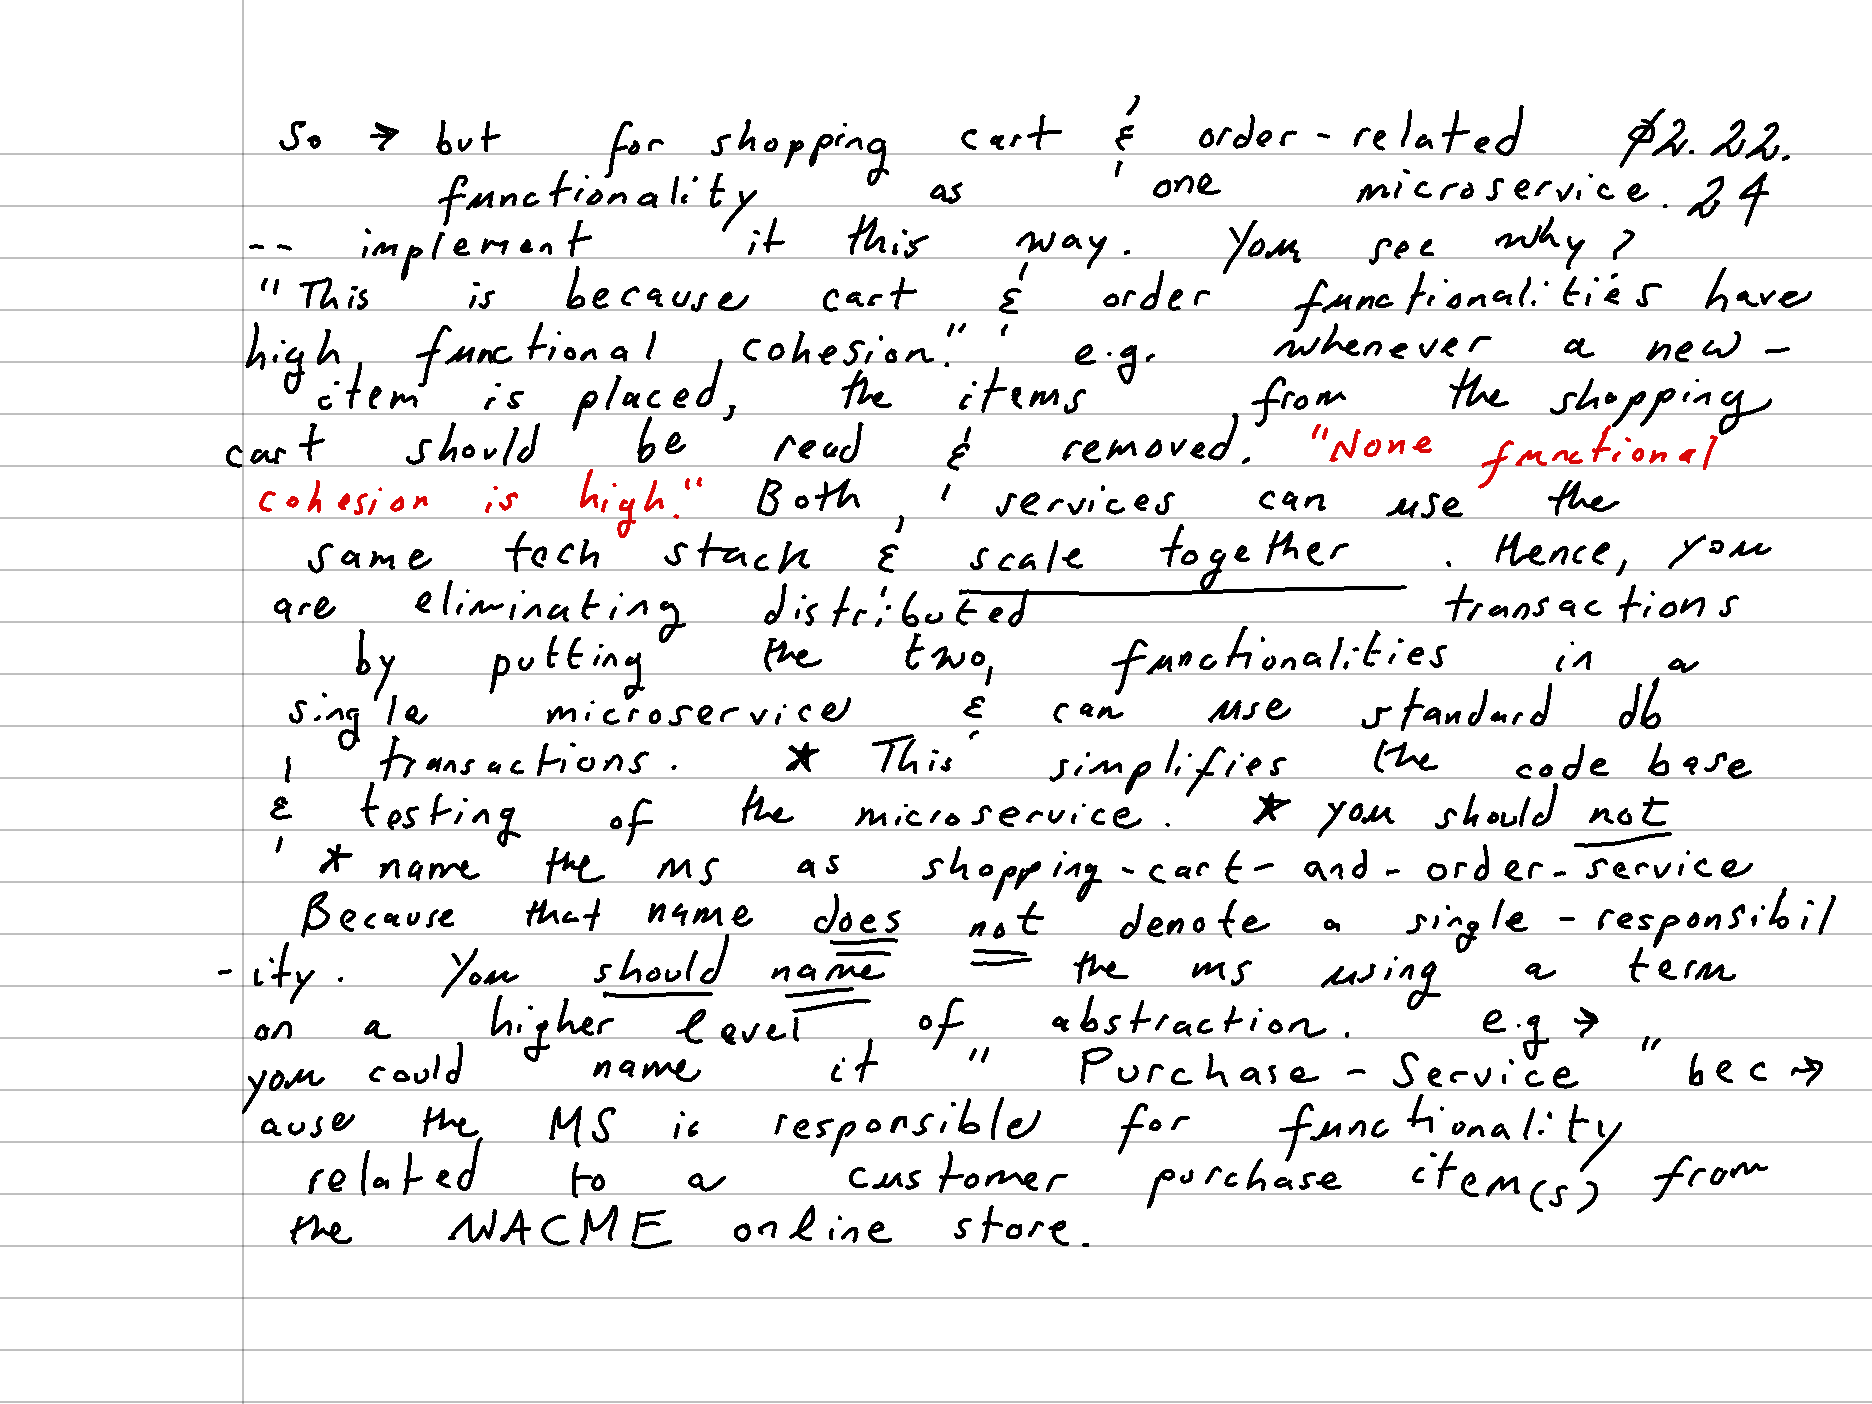 So → but for shopping cart & order-related ϕ2.22.
functionality as one microservice. 24
-- implement it this way. You see why?
"This is because cart & order functionalities have
high functional cohesion." e.g. whenever a new-
item is placed, the items from the shopping
cart should be read & removed. "None functional
cohesion is high." Both services can use the
same tech stack & scale together. Hence, you
are eliminating distributed transactions
by putting the two functionalities in a
single microservice & can use standard db
transactions. * This simplifies the code base
& testing of the microservice. * you should not
* name the ms as shopping-cart-and-order-service
Because that name does not denote a single-responsibil
-ity. You should name the ms using a term
on a higher level of abstraction. e.g →
you could name it "Purchase-Service" bec →
ause the MS is responsible for functionality
related to a customer purchase item(s) from
the WACME online store.